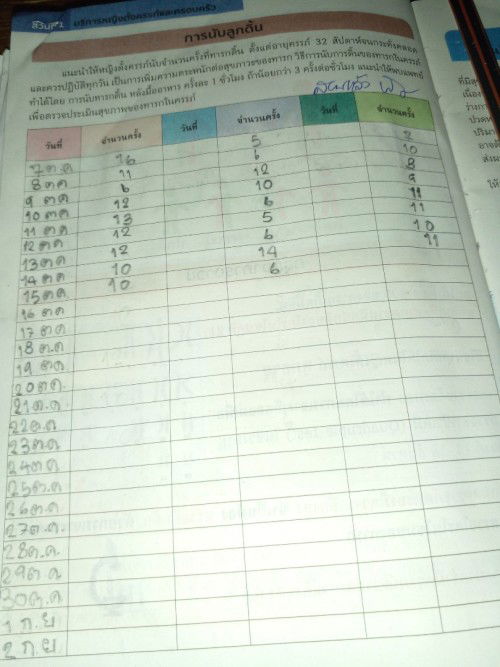 บริการหญิงตั้งครรภ์และครอบครัว
การนับลูกดิ้น
แนะนำให้หญิงตั้งครรภ์นับจำนวนครั้งที่ทารกดิ้น ตั้งแต่อายุครรภ์ 32 สัปดาห์จนกระทั่งคลอด
และควรปฏิบัติทุกวัน เป็นการเพิ่มความตระหนักต่อสุขภาวะของทารก วิธีการนับการดิ้นของทารกในครรภ์
ทำได้โดย การนับทารกดิ้น หลังมื้ออาหาร ครั้งละ 1 ชั่วโมง ถ้าน้อยกว่า 3 ครั้งต่อชั่วโมง แนะนำให้พบแพทย์
เพื่อตรวจประเมินสุขภาพของทารกในครรภ์
วันที่ จำนวนครั้ง วันที่ จำนวนครั้ง วันที่ จำนวนครั้ง
7 ต.ค 16 5 2
8 ตค 11 6 10
9 ตค 6 12 8
10 ตค 12 10 9
11 ตค 13 6 11
12 ตค 12 5 11
13 ตค 12 6 10
14 ตค 10 14 11
15 ตค 10 6
16 ตค
17 ตค
18 ต.ค
19 ตค
20 ตค.
21 ต.ค.
22 ต.ค
23 ตค
24 ตค
25 ต.ค
26 ตค.
27 ต.ค.
28 ต.ค.
29 ต.ค
30 ต.ค
1 ก.ย
2 ก.ย